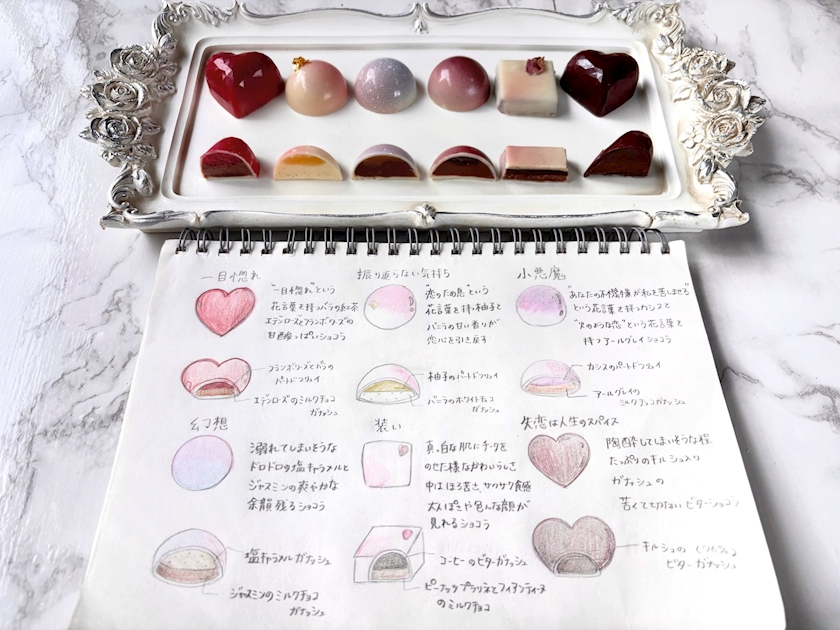 一目惚れ
"一目惚れ"という
花言葉を持つバラの紅茶
エデンローズとフランボワーズの
甘酸っぱいショコラ
フランボワーズとバラの
パートドフリュイ
エデンローズのミルクチョコ
ガナッシュ
振り返らない気持ち
"恋のため息"という
花言葉を持つ柚子と
バニラの甘い香りが
恋心を引き戻す
柚子のパートドフリュイ
バニラのホワイトチョコ
ガナッシュ
小悪魔
"あなたの不機嫌が私を苦しませる"
という花言葉を持つカシスと
"火のような恋"という花言葉を
持つアールグレイショコラ
カシスのパートドフリュイ
アールグレイの
ミルクチョコガナッシュ
幻想
溺れてしまいそうな
ドロドロの塩キャラメルと
ジャスミンの爽やかな
余韻残るショコラ
塩キャラメルガナッシュ
ジャスミンのミルクチョコ
ガナッシュ
装い
真っ白な肌にチークを
のせた様なかわいらしさ
中はほろ苦さ、サクサク食感
大人っぽさや色んな顔が
見れるショコラ
コーヒーのビターガナッシュ
ピーナッツプラリネとフィアンティーヌ
のミルクチョコ
失恋は人生のスパイス
陶酔してしまいそうな程
たっぷりのキルシュ入り
ガナッシュの
苦くて切ないビターショコラ
キルシュの (76%)
ビターガナッシュ